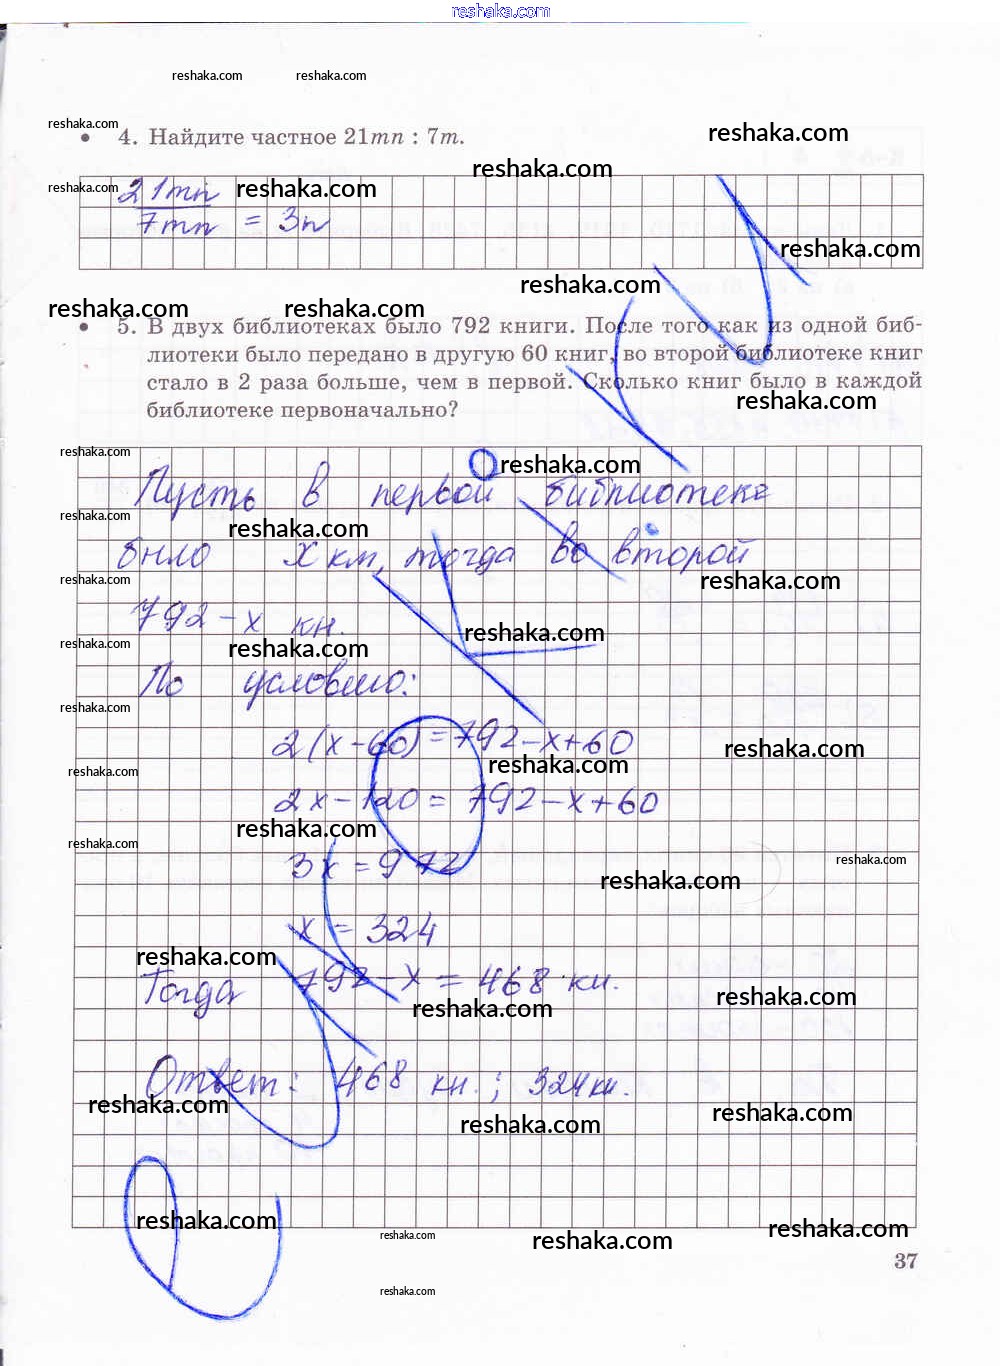 reshaka.com
reshaka.com reshaka.com
reshaka.com
reshaka.com
• 4. Найдите частное 21mn : 7m.
reshaka.com
reshaka.com reshaka.com
21mn
7mn = 3n
reshaka.com
reshaka.com
reshaka.com reshaka.com
• 5. В двух библиотеках было 792 книги. После того как из одной биб-
лиотеки было передано в другую 60 книг, во второй библиотеке книг
стало в 2 раза больше, чем в первой. Сколько книг было в каждой
reshaka.com
библиотеке первоначально?
reshaka.com
reshaka.com
Пусть в первой библиотеке
reshaka.com
reshaka.com
было x км, тогда во второй
reshaka.com
reshaka.com
792-x кн.
reshaka.com
reshaka.com
reshaka.com
По условию:
reshaka.com
2(x-60)=792-x+60
reshaka.com
reshaka.com
reshaka.com
2x-120= 792-x+60
reshaka.com
reshaka.com
3x=972
reshaka.com
reshaka.com
x = 324
reshaka.com
Тогда 792-x = 468 кн.
reshaka.com
reshaka.com
Ответ: 468 кн.; 324кн.
reshaka.com
reshaka.com
reshaka.com
reshaka.com
reshaka.com
reshaka.com
reshaka.com
37
reshaka.com